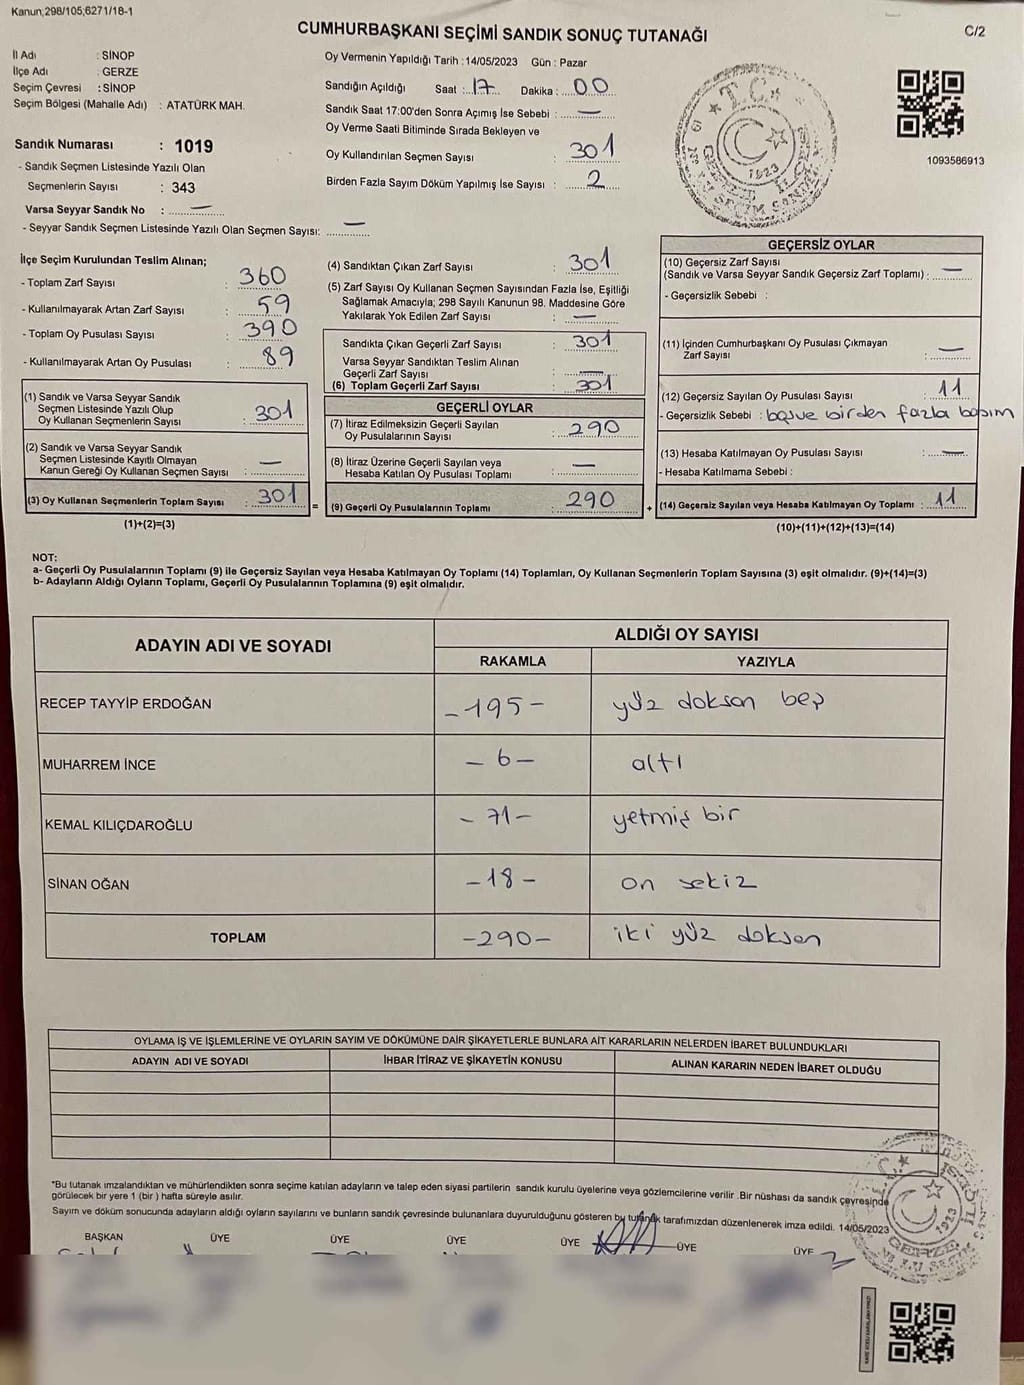 Kanun;298/105;6271/18-1
CUMHURBAŞKANI SEÇİMİ SANDIK SONUÇ TUTANAĞI
C/2
İl Adı : SİNOP
İlçe Adı : GERZE
Seçim Çevresi : SİNOP
Seçim Bölgesi (Mahalle Adı) : ATATÜRK MAH.
Sandık Numarası : 1019
- Sandık Seçmen Listesinde Yazılı Olan
Seçmenlerin Sayısı : 343
Varsa Seyyar Sandık No : —
- Seyyar Sandık Seçmen Listesinde Yazılı Olan Seçmen Sayısı: —
Oy Vermenin Yapıldığı Tarih : 14/05/2023 Gün : Pazar
Sandığın Açıldığı Saat : 17 Dakika : 00
Sandık Saat 17:00'den Sonra Açımış İse Sebebi : —
Oy Verme Saati Bitiminde Sırada Bekleyen ve
Oy Kullandırılan Seçmen Sayısı : 301
Birden Fazla Sayım Döküm Yapılmış İse Sayısı : 2
T.C.
1923
1093586913
İlçe Seçim Kurulundan Teslim Alınan;
- Toplam Zarf Sayısı : 360
- Kullanılmayarak Artan Zarf Sayısı : 59
- Toplam Oy Pusulası Sayısı : 390
- Kullanılmayarak Artan Oy Pusulası : 89
(1) Sandık ve Varsa Seyyar Sandık
Seçmen Listesinde Yazılı Olup
Oy Kullanan Seçmenlerin Sayısı : 301
(2) Sandık ve Varsa Seyyar Sandık
Seçmen Listesinde Kayıtlı Olmayan
Kanun Gereği Oy Kullanan Seçmen Sayısı : —
(3) Oy Kullanan Seçmenlerin Toplam Sayısı : 301
(1)+(2)=(3)
=
(4) Sandıktan Çıkan Zarf Sayısı : 301
(5) Zarf Sayısı Oy Kullanan Seçmen Sayısından Fazla İse, Eşitliği
Sağlamak Amacıyla; 298 Sayılı Kanunun 98. Maddesine Göre
Yakılarak Yok Edilen Zarf Sayısı : —
Sandıkta Çıkan Geçerli Zarf Sayısı : 301
Varsa Seyyar Sandıktan Teslim Alınan
Geçerli Zarf Sayısı : —
(6) Toplam Geçerli Zarf Sayısı : 301
GEÇERLİ OYLAR
(7) İtiraz Edilmeksizin Geçerli Sayılan
Oy Pusulalarının Sayısı : 290
(8) İtiraz Üzerine Geçerli Sayılan veya
Hesaba Katılan Oy Pusulası Toplamı : —
(9) Geçerli Oy Pusulalarının Toplamı : 290
+
GEÇERSİZ OYLAR
(10) Geçersiz Zarf Sayısı
(Sandık ve Varsa Seyyar Sandık Geçersiz Zarf Toplamı) : —
- Geçersizlik Sebebi :
(11) İçinden Cumhurbaşkanı Oy Pusulası Çıkmayan
Zarf Sayısı : —
(12) Geçersiz Sayılan Oy Pusulası Sayısı : 11
- Geçersizlik Sebebi : boş ve birden fazla basım
(13) Hesaba Katılmayan Oy Pusulası Sayısı : —
- Hesaba Katılmama Sebebi :
(14) Geçersiz Sayılan veya Hesaba Katılmayan Oy Toplamı : 11
(10)+(11)+(12)+(13)=(14)
NOT:
a- Geçerli Oy Pusulalarının Toplamı (9) ile Geçersiz Sayılan veya Hesaba Katılmayan Oy Toplamı (14) Toplamları, Oy Kullanan Seçmenlerin Toplam Sayısına (3) eşit olmalıdır. (9)+(14)=(3)
b- Adayların Aldığı Oyların Toplamı, Geçerli Oy Pusulalarının Toplamına (9) eşit olmalıdır.
ADAYIN ADI VE SOYADI ALDIĞI OY SAYISI
RAKAMLA YAZIYLA
RECEP TAYYİP ERDOĞAN -195- yüz doksan beş
MUHARREM İNCE -6- altı
KEMAL KILIÇDAROĞLU -71- yetmiş bir
SİNAN OĞAN -18- on sekiz
TOPLAM -290- iki yüz doksan
OYLAMA İŞ VE İŞLEMLERİNE VE OYLARIN SAYIM VE DÖKÜMÜNE DAİR ŞİKAYETLERLE BUNLARA AİT KARARLARIN NELERDEN İBARET BULUNDUKLARI
ADAYIN ADI VE SOYADI İHBAR İTİRAZ VE ŞİKAYETİN KONUSU ALINAN KARARIN NEDEN İBARET OLDUĞU
*Bu tutanak imzalandıktan ve mühürlendikten sonra seçime katılan adayların ve talep eden siyasi partilerin sandık kurulu üyelerine veya gözlemcilerine verilir .Bir nüshası da sandık çevresinde
görülecek bir yere 1 (bir ) hafta süreyle asılır.
Sayım ve döküm sonucunda adayların aldığı oyların sayılarını ve bunların sandık çevresinde bulunanlara duyurulduğunu gösteren bu tutanak tarafımızdan düzenlenerek imza edildi. 14/05/2023
BAŞKAN ÜYE ÜYE ÜYE ÜYE ÜYE ÜYE
T.C.
1923